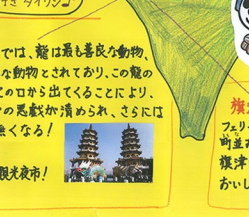 では、龍は最も善良な動物、
な動物とされており、この龍の
の口から出てくることにより、
の悪戯が清められ、さらには
無くなる!
観光夜市!
フェリ
町並
旗津
おいし